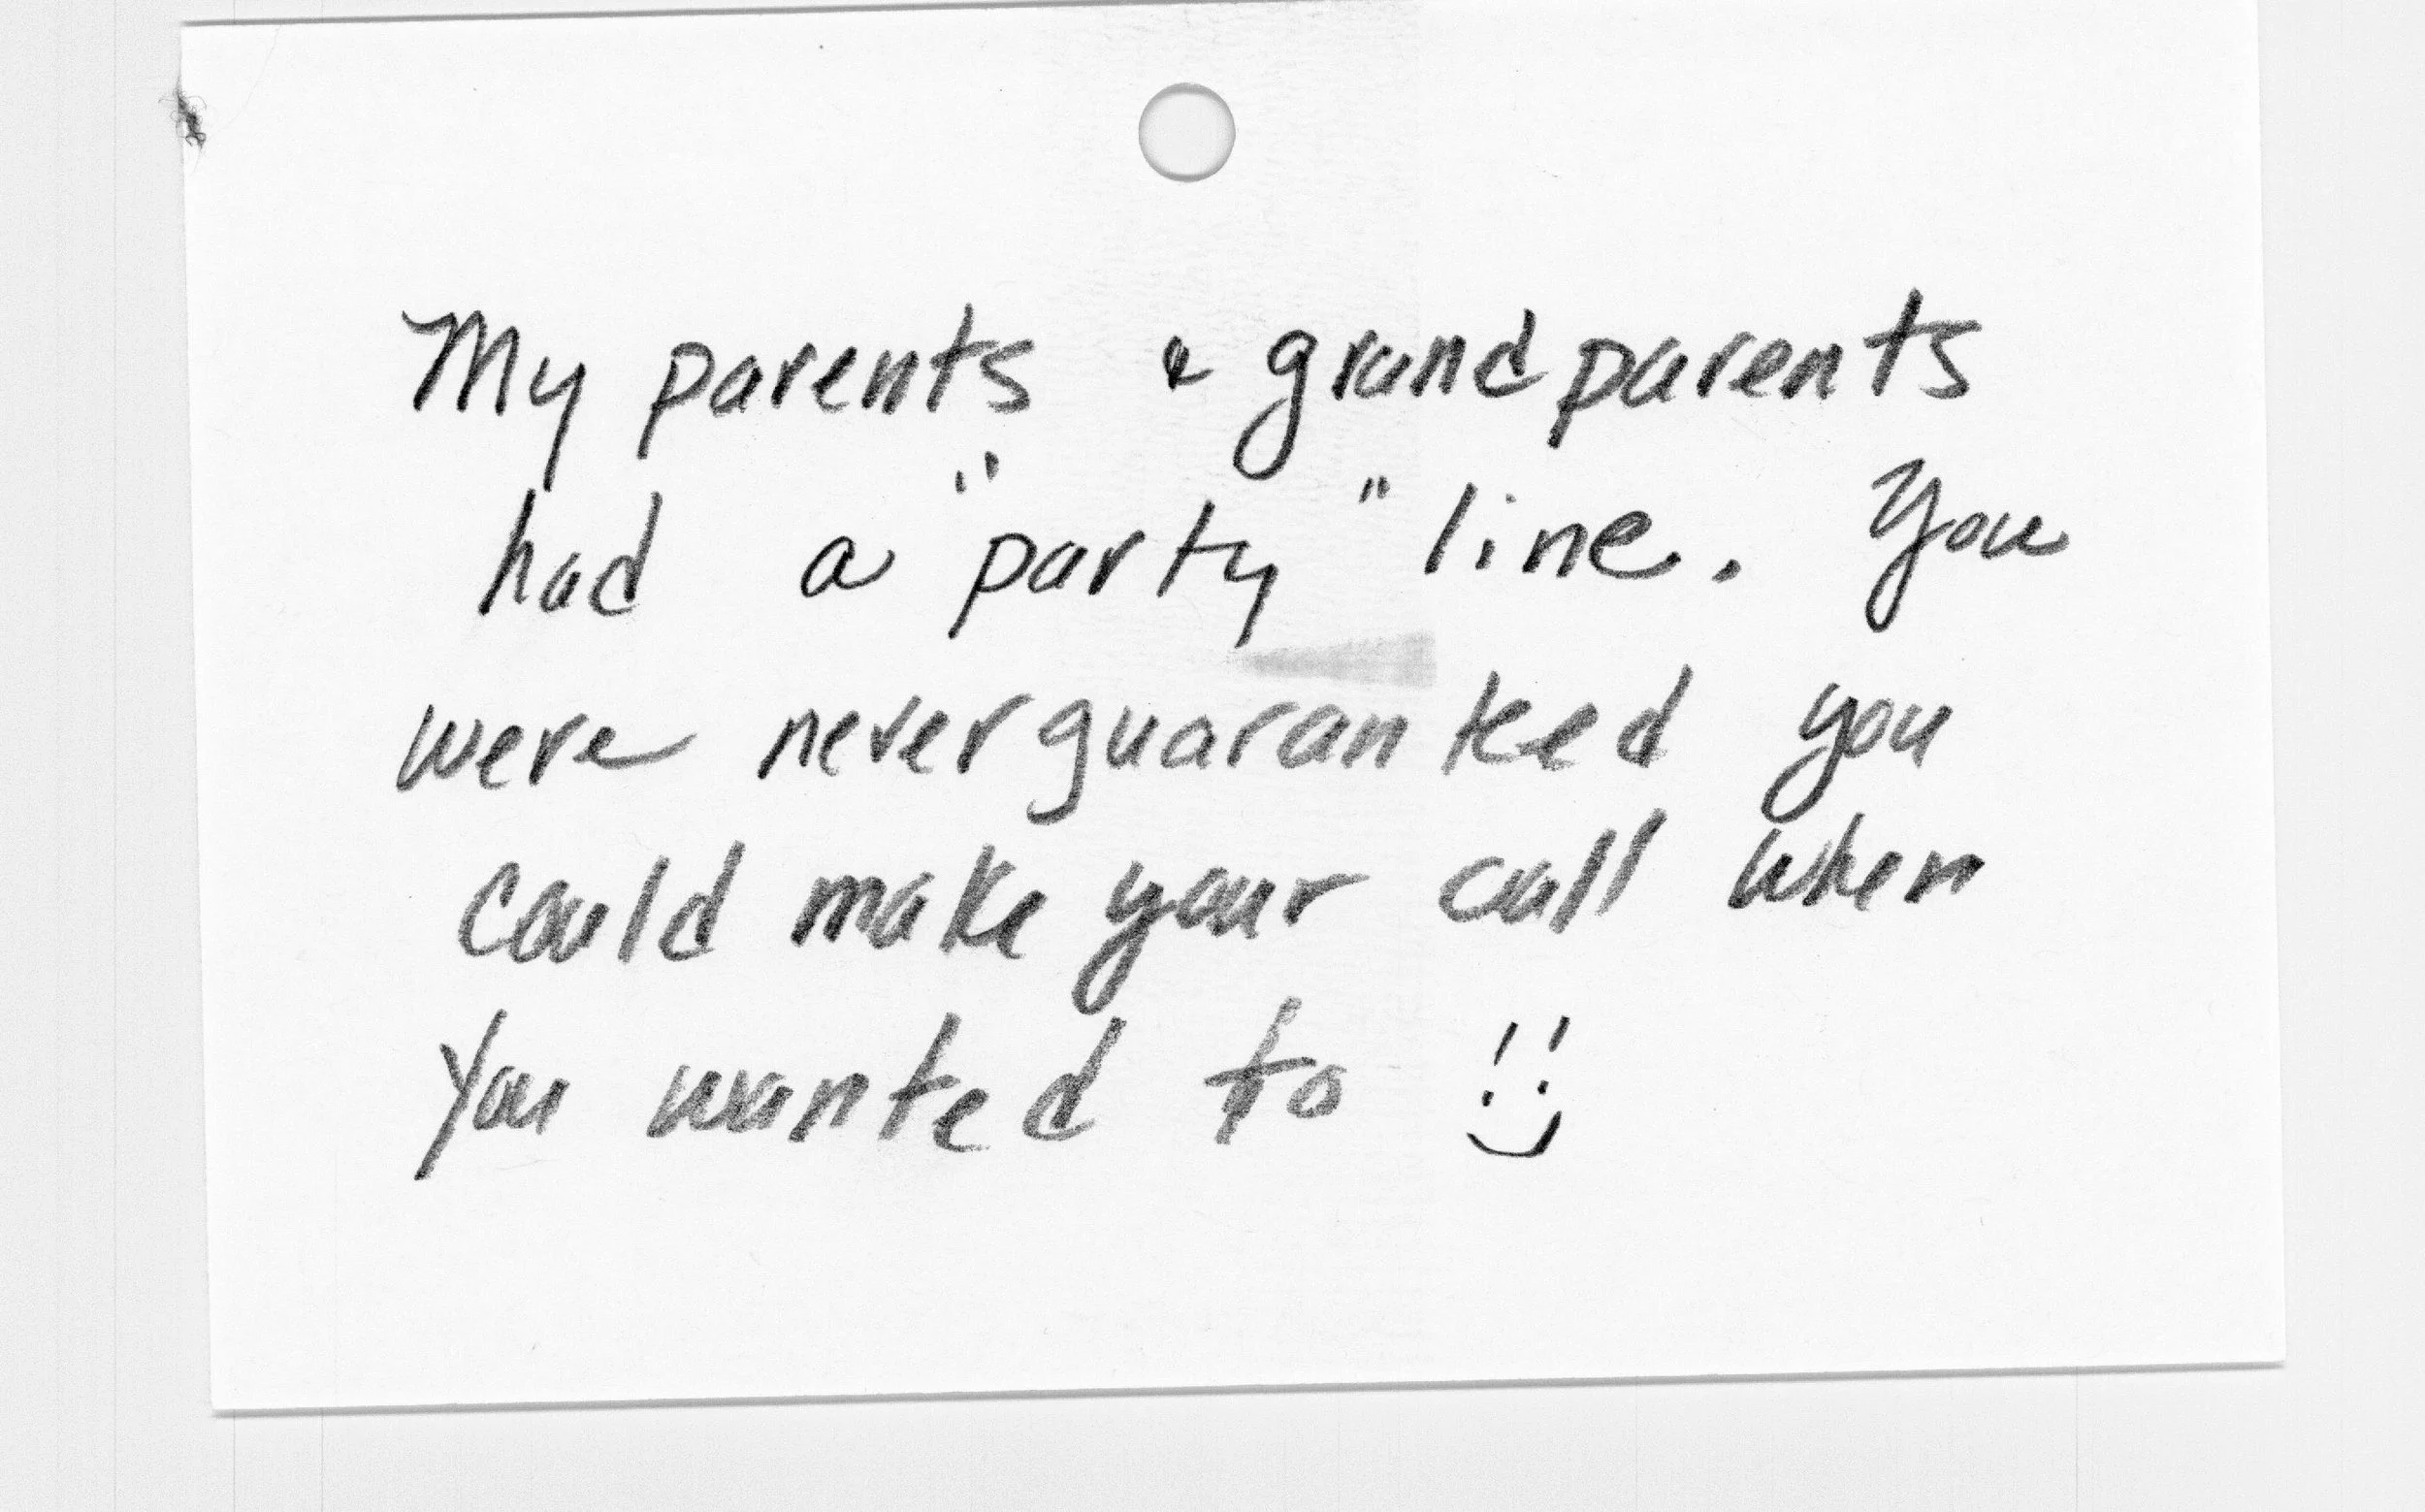 My parents & grandparents
had a "party" line. You
were never guaranteed you
could make your call when
you wanted to !!